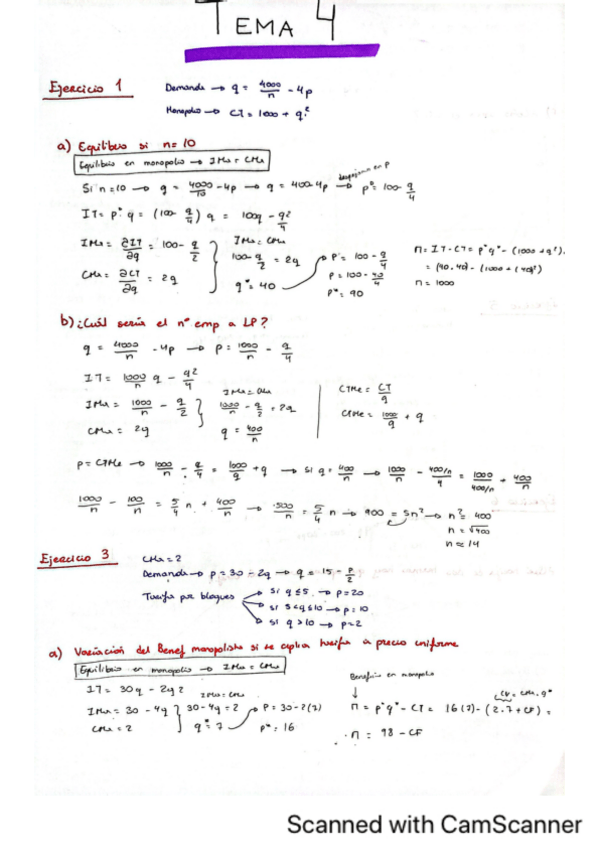 TEMA 4
Ejercicio 1
Demanda → q = 4000/n - 4p
Monopolio → CT = 1000 + q²
a) Equilibrio si n=10
Equilibrio en monopolio → IMa = CMa
Si n=10 → q = 4000/10 - 4p → q = 400-4p → despejamos en P p* = 100 - q/4
IT = p* q = (100 - q/4) q = 100q - q²/4
IMa = ∂IT/∂q = 100 - q/2
CMa = ∂CT/∂q = 2q
IMa = CMa
100 - q/2 = 2q
q* = 40
P = 100 - q/4
P = 100 - 40/4
P* = 90
π = IT - CT = p*q* - (1000 + q²).
= (90.40) - (1000 + (40)²)
π = 1000
b) ¿Cuál sería el nº emp a LP?
q = 4000/n - 4p → p = 1000/n - q/4
IT = 1000/n q - q²/4
IMa = 1000/n - q/2
CMa = 2q
IMa = CMa
1000/n - q/2 = 2q
q = 400/n
CTMe = CT/q
CTMe = 1000/q + q
p = CTMe → 1000/n - q/4 = 1000/q + q → si q = 400/n → 1000/n - 400/n/4 = 1000/400/n + 400/n
1000/n - 100/n = 5/4 n + 400/n → 500/n = 5/4 n → 900 = 5n² → n² = 400
n = √400
n ≈ 14
Ejercicio 3
CMa = 2
Demanda → p = 30 - 2q → q = 15 - P/2
Tarifa por bloques → si q ≤ 5 → p = 20
→ si 5<q≤10 → p = 10
→ si q > 10 → p = 2
a) Variación del Benef monopolista si se aplica tarifa a precio uniforme
Equilibrio en monopolio → IMa = CMa
IT = 30q - 2q²
IMa = 30 - 4q
CMa = 2
IMa = CMa
30 - 4q = 2
q* = 7
P = 30 - 2(7)
p* = 16
Beneficio en monopolio
CV = CMa. q*
π = p*q* - CT = 16(7) - (2.7 + CF) =
π = 98 - CF
Scanned with CamScanner